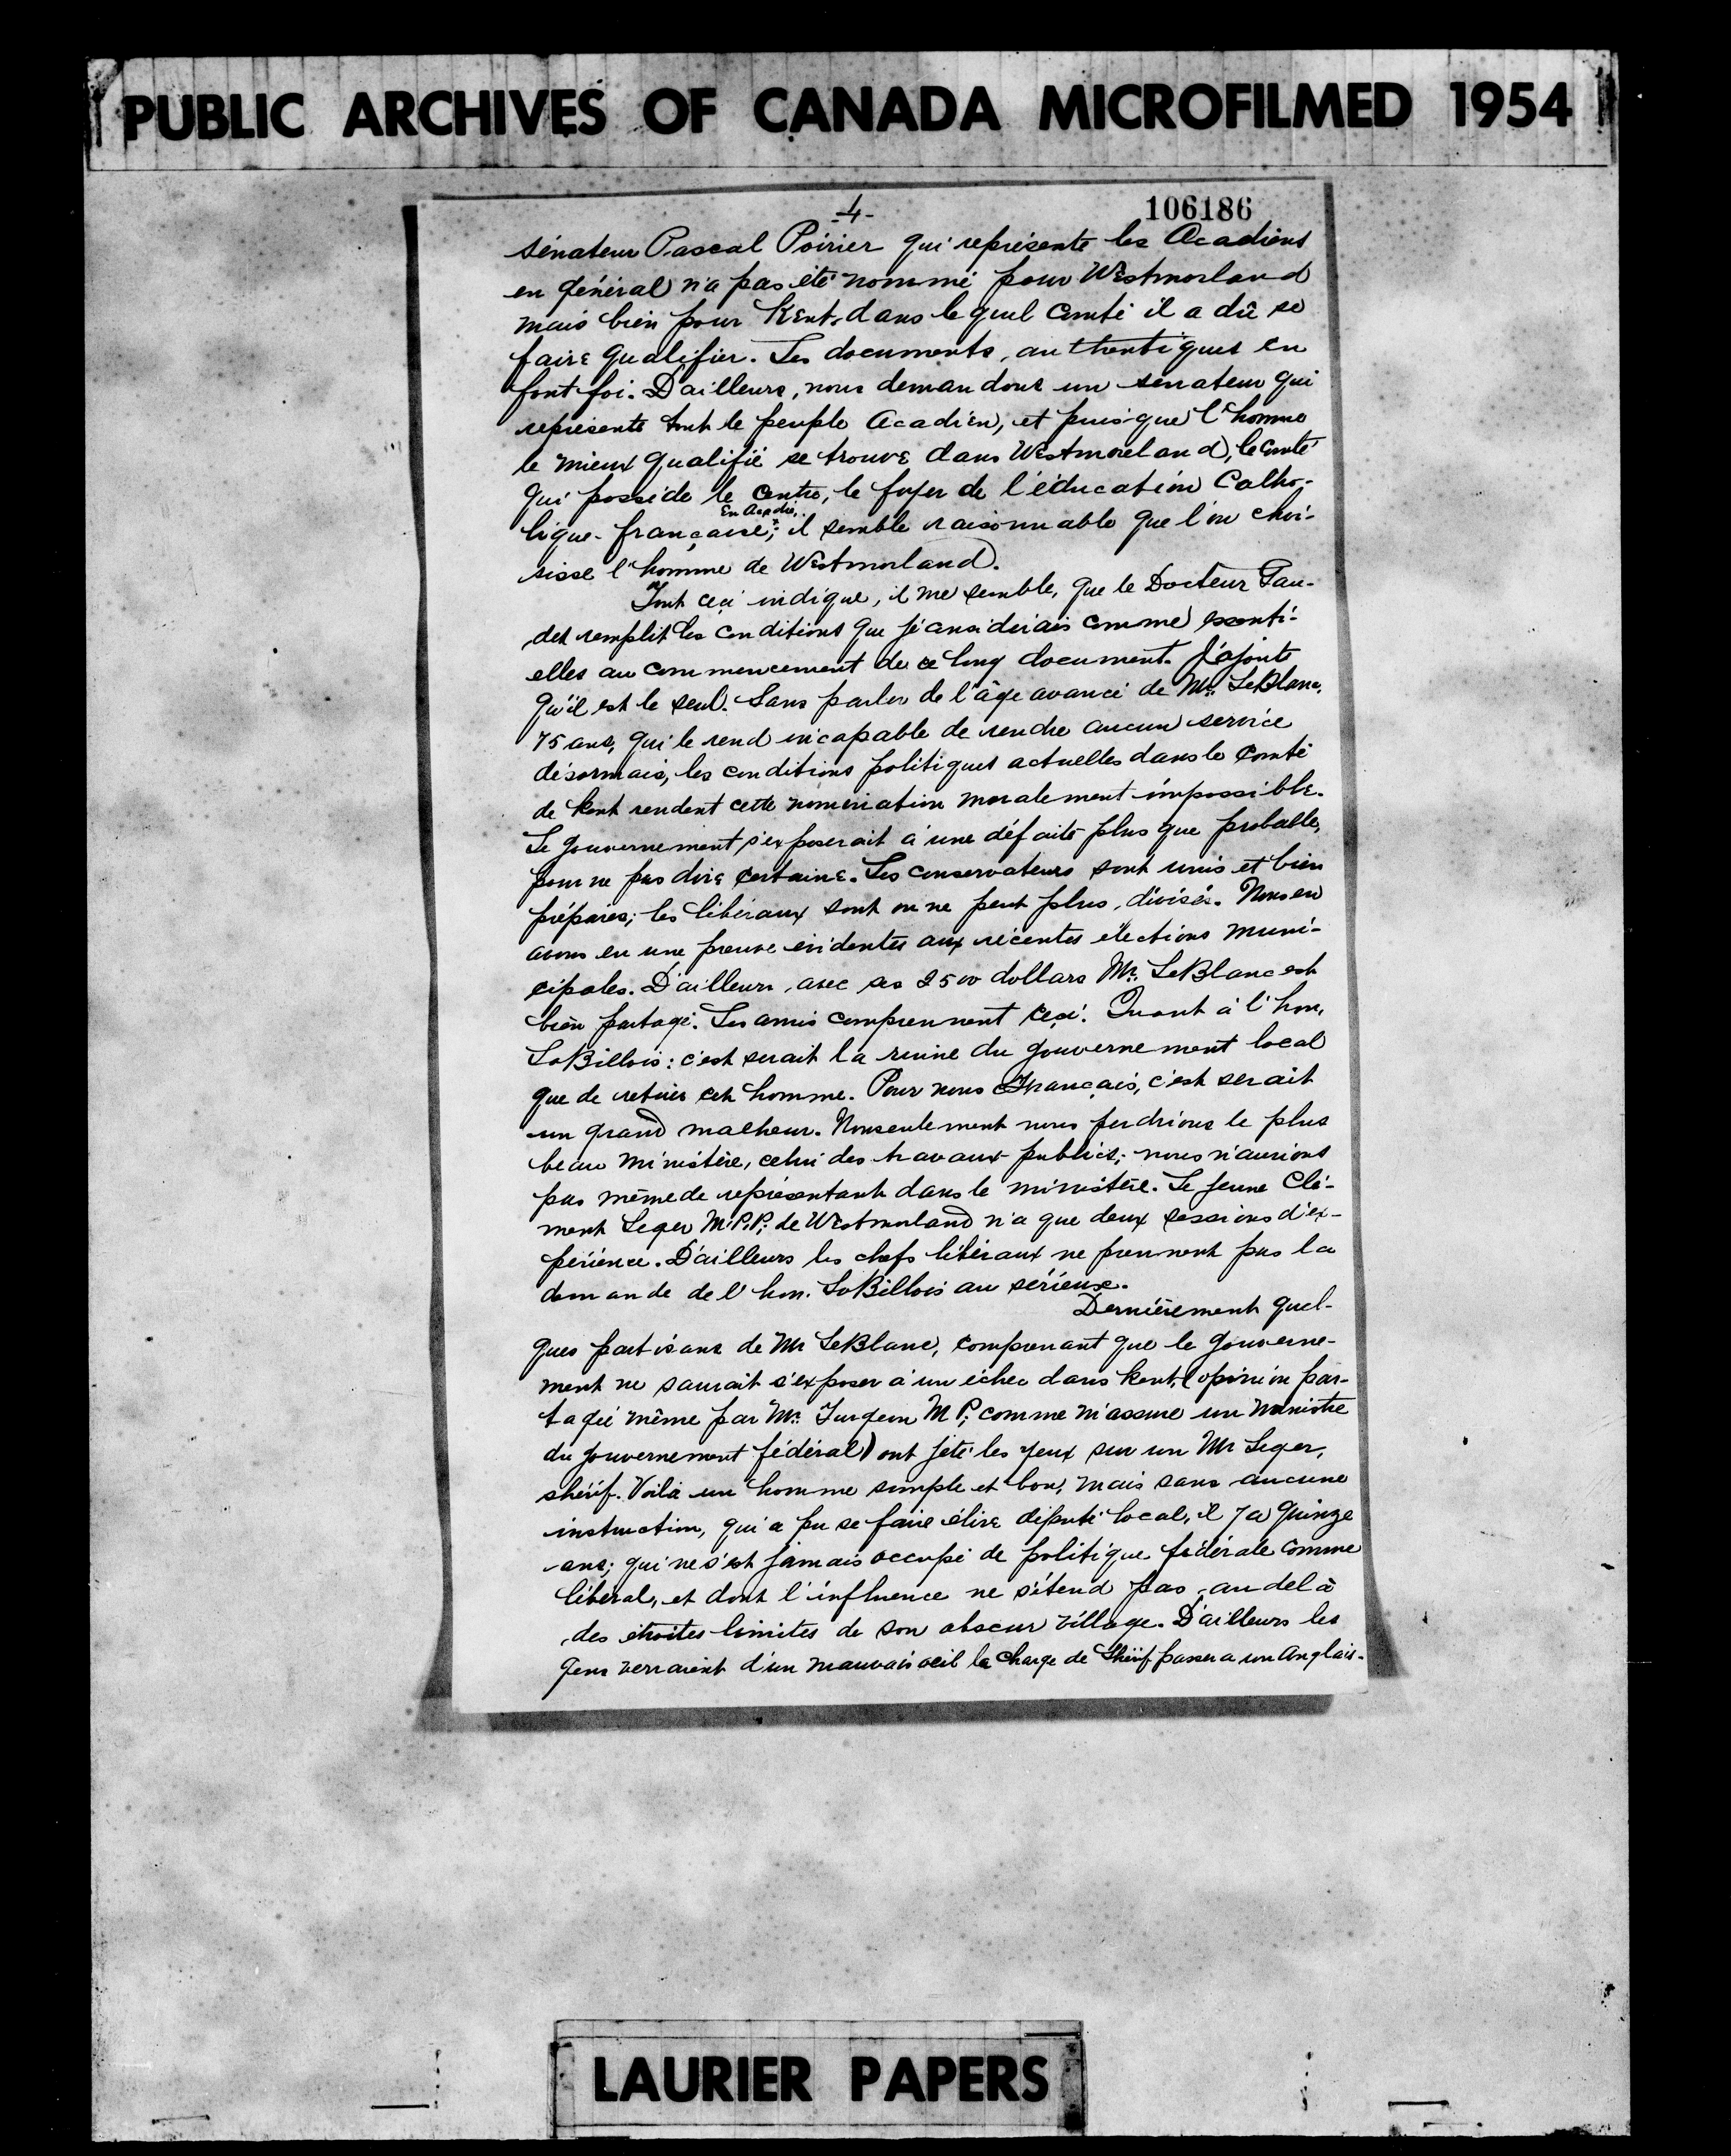 PUBLIC ARCHIVES OF CANADA MICROFILMED 1954
-4-
106186
sénateur Pascal Poirier qui représente les Acadiens
en général n'a pas été nommé pour Westmorland
mais bien pour Kent, dans lequel Comté il a dû se
faire qualifier. Les documents, authentiques en
font foi. D'ailleurs, nous demandons un sénateur qui
représente tout le peuple Acadien, et puisque l'homme
le mieux qualifié se trouve dans Westmorland, le Comté
qui possède le Centre, le foyer de l'éducation Catho-
En Acadie,
lique-française; il semble raisonnable que l'on choi-
sisse l'homme de Westmorland.
Tout ceci indique, il me semble, que le Docteur Gau-
det remplit les conditions que je considérais comme essenti-
elles au commencement de ce long document. J'ajoute
qu'il est le seul. Sans parler de l'âge avancé de Mr. LeBlanc,
75 ans, qui le rend incapable de rendre aucun service
désormais, les conditions politiques actuelles dans le Comté
de Kent rendent cette nomination moralement impossible.
Le gouvernement s'exposerait à une défaite plus que probable,
pour ne pas dire certaine. Les conservateurs sont unis et bien
préparés; les libéraux sont on ne peut plus, divisés. Nous en
avons eu une preuve evidente aux récentes élections muni-
cipales. D'ailleurs, avec ses 2500 dollars Mr. LeBlanc est
bien partagé. Ses amis comprennent ceci. Quant à l'hon,
LaBillois: c'est serait la ruine du gouvernement local
que de retirer cet homme. Pour nous Français, c'est serait
un grand malheur. Nonseulement nous perdrions le plus
beau ministère, celui des travaux publics; nous n'aurions
pas même de représentant dans le ministère. Le jeune Clé-
ment Leger M.P.P. de Westmorland n'a que deux sessions d'ex-
périence. D'ailleurs les chefs libéraux ne prennent pas la
demande de l'hon. LaBillois au sérieux.
Dernièrement quel-
ques partisans de Mr LeBlanc, comprenant que le gouverne-
ment ne saurait s'exposer à un échec dans Kent, (opinion par-
tagée même par Mr. Turgeon M P; comme m'assure un Ministre
du gouvernement fédéral) ont jeté les yeux sur un Mr Leger,
shérif. Voilà un homme simple et bon, mais sans aucune
instruction, qui a pu se faire élire député local, il y a quinze
ans; qui ne s'est jamais occupé de politique fédérale comme
libéral, et dont l'influence ne s'étend pas au delà
des étroites limites de son obscur village. D'ailleurs les
gens verraient d'un mauvais oeil la charge de Shérif passer a un Anglais.
LAURIER PAPERS